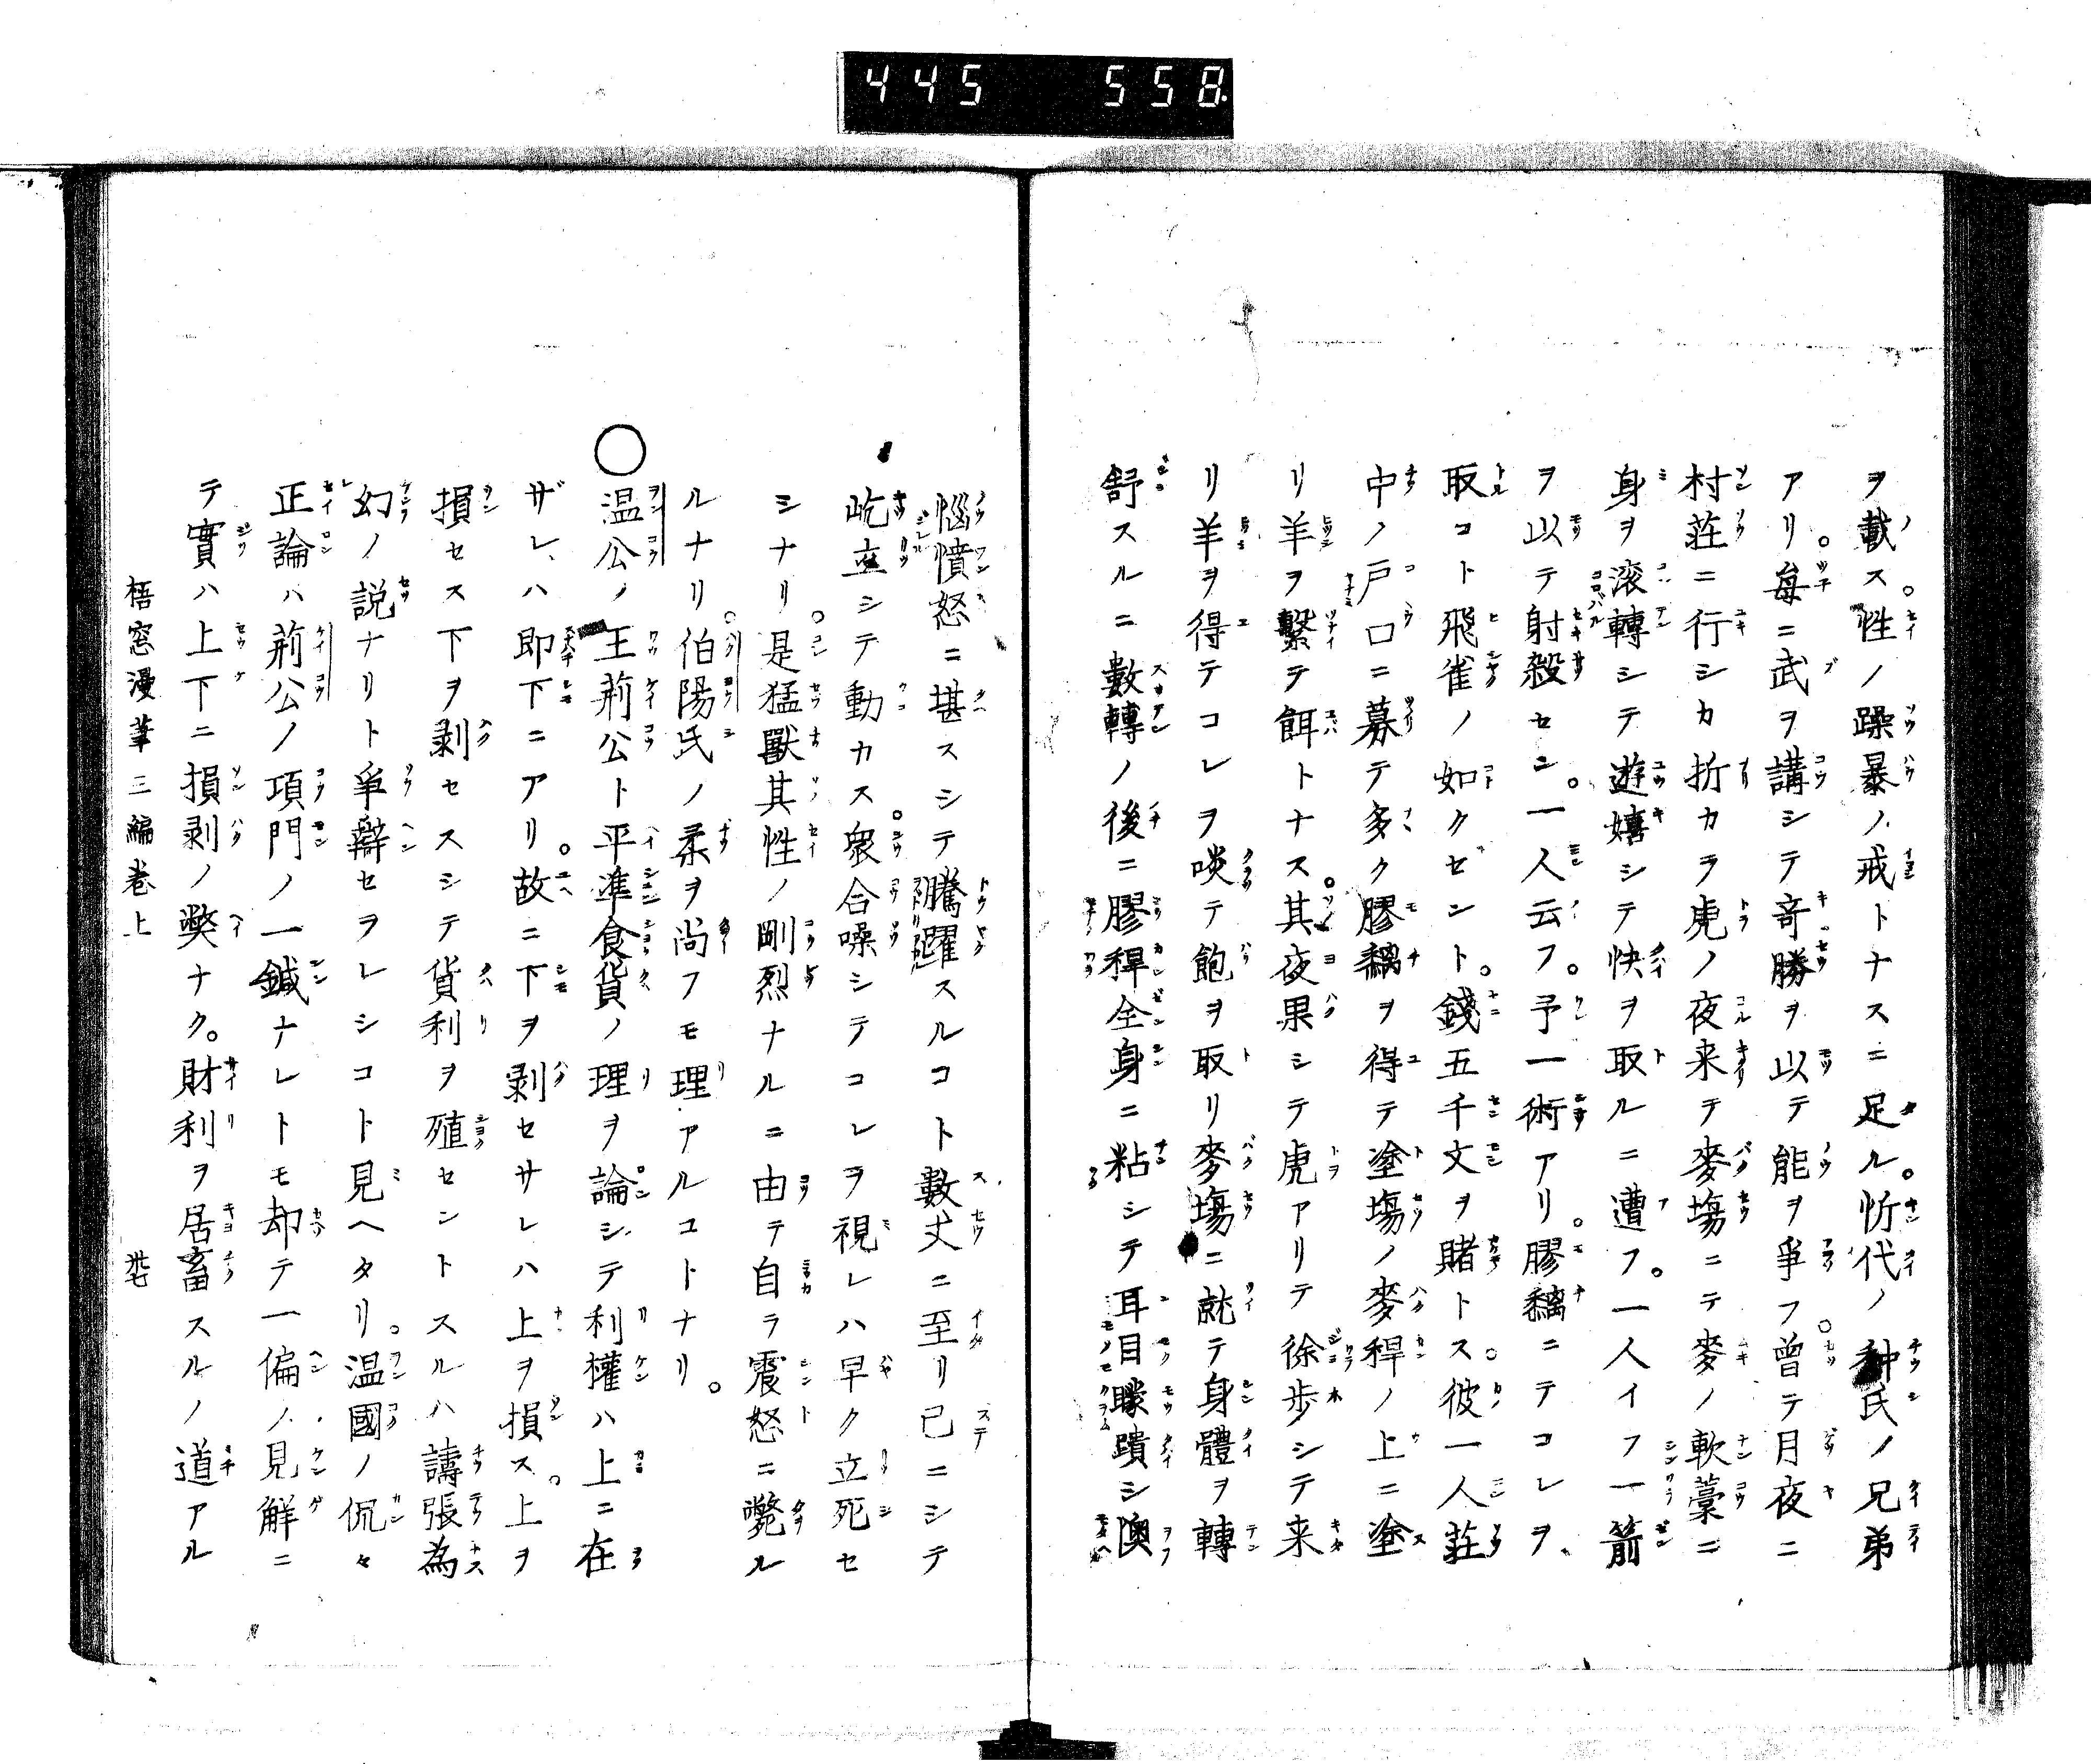 445 558
ヲ載ス。性ノ躁暴ノ戒トナスニ足ル。忻代ノ种氏ノ兄弟
アリ。毎ニ武ヲ講シテ竒勝ヲ以テ能ヲ爭フ。曽テ月夜ニ
村莊ニ行シカ折カラ虎ノ夜来テ麥塲ニテ麥ノ軟藁ニ
身ヲ滚轉シテ遊嬉シテ快ヲ取ルニ遭フ。一人イフ一箭
ヲ以テ射殺セン。一人云フ。予一術アリ。膠黐ニテコレヲ
取コト飛雀ノ如クゼント。錢五千文ヲ賭トス。彼一人莊
中ノ戸口ニ募テ多ク膠黐ヲ得テ塗塲ノ麥稈ノ上ニ塗
リ羊ヲ繫テ餌トナス。其夜果シテ虎アリテ徐歩シテ来
リ羊ヲ得テコレヲ啖テ飽ヲ取リ麥塲ニ就テ身體ヲ轉
舒スルニ數轉ノ後ニ膠稈全身ニ粘シテ耳目矇聵シ懊
惱憤怒ニ堪スシテ騰躍スルコト數丈ニ至リ已ニシテ
屹立シテ動カス。衆合噪シテコレヲ視レハ早ク立死セ
シナリ。是猛獸其性ノ剛烈ナルニ由テ自ラ震怒ニ斃ル
ルナリ。伯陽氏ノ柔ヲ尚フモ理アルコトナリ。
○温公ノ王荊公ト平準食貨ノ理ヲ論シテ利權ハ上ニ在
ザレハ即下ニアリ。故ニ下ヲ剥セサレハ上ヲ損ス。上ヲ
損セス下ヲ剥セスシテ貨利ヲ殖セントスルハ譸張為
幻ノ説ナリト爭辯セヲレシコト見ヘタリ。温國ノ侃々
正論ハ荊公ノ項門ノ一鍼ナレトモ却テ一偏ノ見解ニ
テ實ハ上下ニ損剥ノ獘ナク。財利ヲ居畜スルノ道アル
梧窓漫筆三編卷上